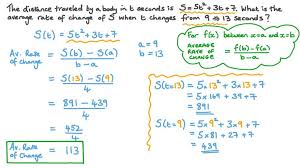 The distance traveled by a body in t seconds is S = 5t² + 3t + 7. What is the
average rate of change of S when t changes from 9 to 13 seconds?
S(t) = 5t² + 3t + 7
a = 9
b = 13
For f(x) between x=a and x=b
AVERAGE RATE OF CHANGE = f(b) - f(a) / b - a
Av. Rate of Change = S(b) - S(a) / b - a
= S(13) - S(9) / 4
= 891 - 439 / 4
= 452 / 4
Av. Rate of Change = 113
S(t=13) = 5×13² + 3×13 + 7
= 5×169 + 39 + 7
= 891
S(t=9) = 5×9² + 3×9 + 7
= 5×81 + 27 + 7
= 439